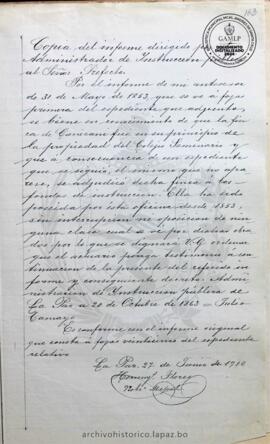 163
GAMLP
DOCUMENTO
DIGITALIZADO
Copia del informe dirigido
Administrador de Instruccion pública
al Señor Prefecto.
Por el informe de mi antecesor
de 31 de Mayo de 1863, que se vé á fojas
primera del espediente que adjunto,
se viene en conocimiento de que la fin
ca de fué en su principio de
la propiedad del Colejio Seminario y
que á consecuencia de un espediente
que se siguió, el mismo que no apa
rese, se adjudicó dicha finca á los
fondos de instruccion. Ella ha sido
poseida por esta oficina desde 1853,
sin interrupcion ni oposicion de nin
guna clase cual se vé por dichos obra
dos por lo que se dignará V.G. ordenar
que el actuario ponga testimonio á con
tinuacion de la presente del referido in
forme y consiguiente decreto. Admi
nistracion de Instruccion pública de
La Paz á 20 de Octubre de 1863 = Julio
Tamayo
Es conforme con el informe original
que consta á fojas del espediente
relativo
La Paz, 27 de Junio de 1910
Flores
archivohistorico.lapaz.bo